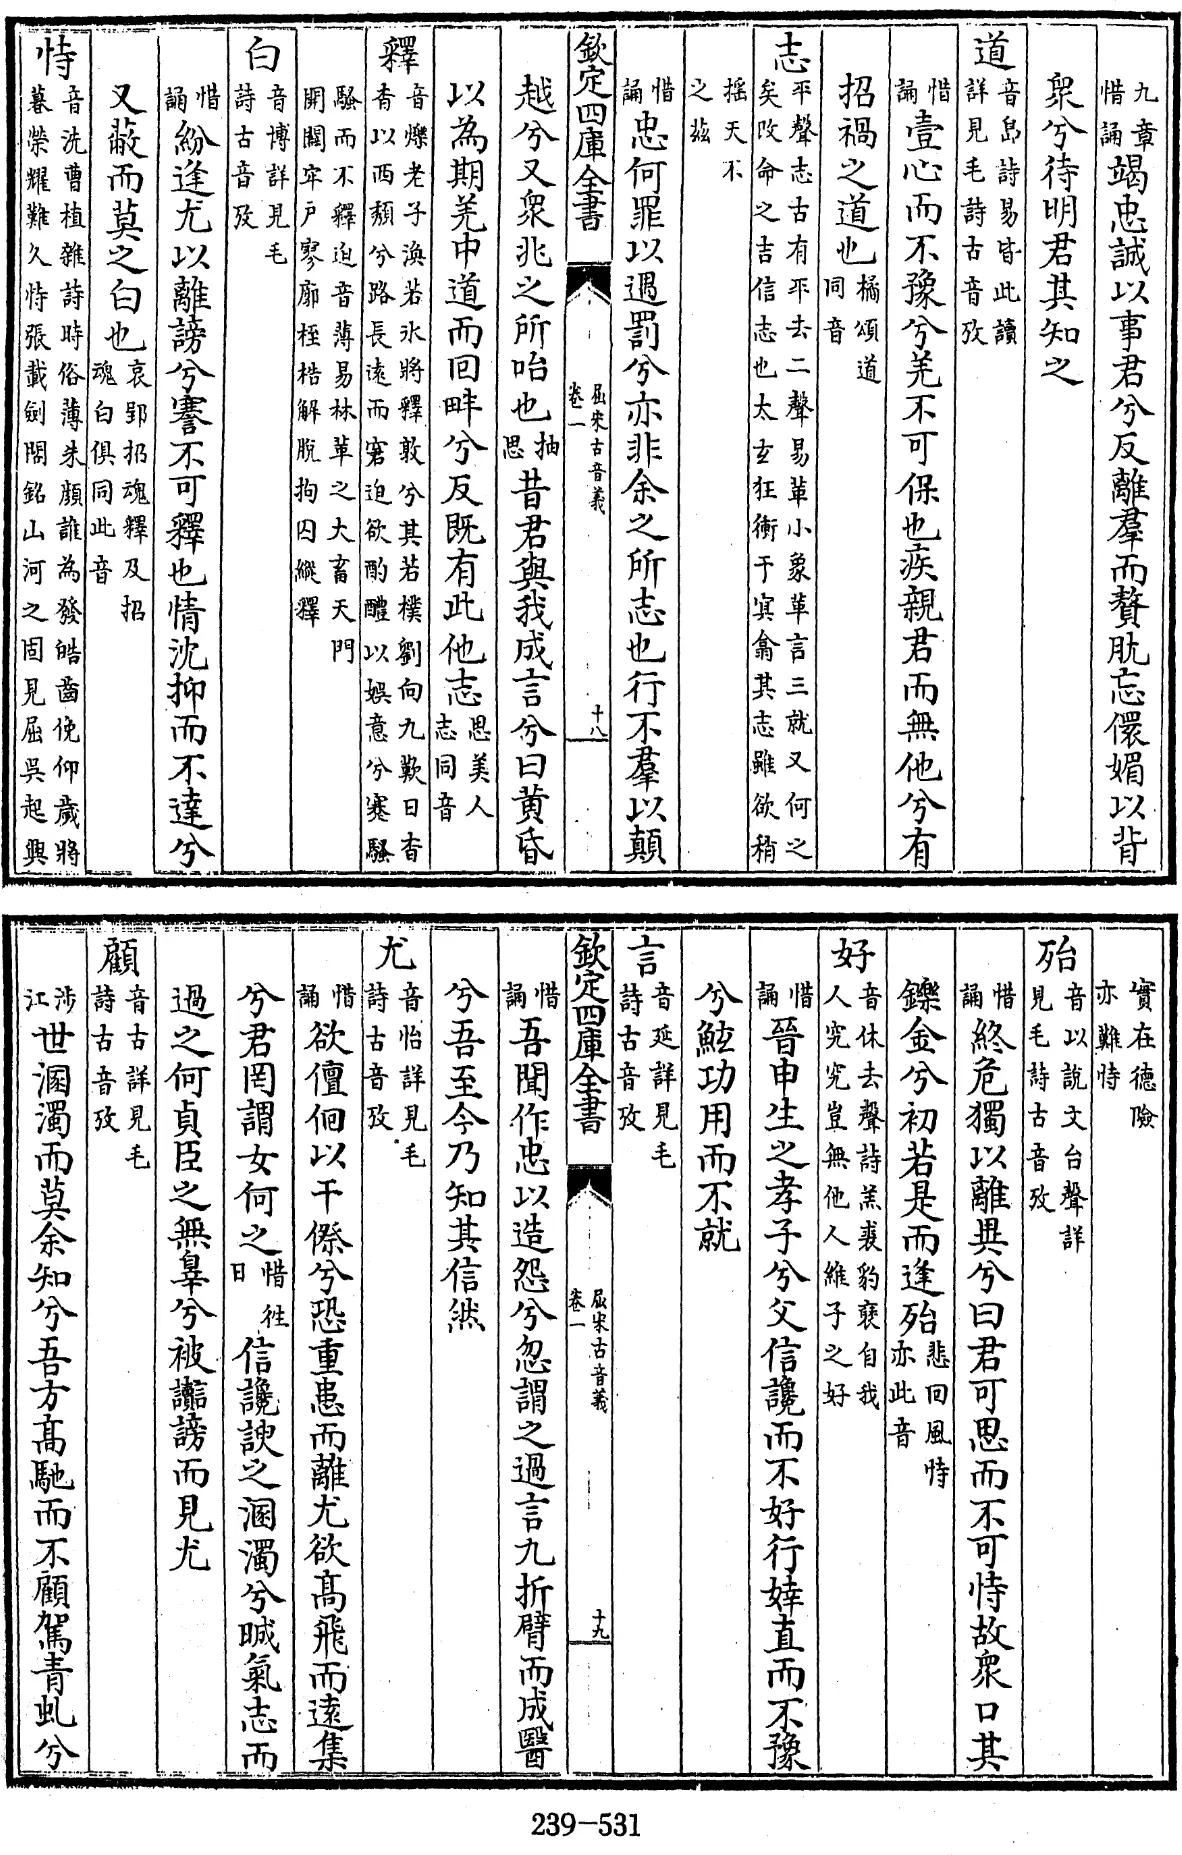 九章惜誦竭忠誠以事君兮反離羣而贅肬忘儇媚以背
衆兮待明君其知之
道音島詩易皆此讀詳見毛詩古音攷
惜誦壹心而不豫兮羌不可保也疾親君而無他兮有
招禍之道也橘頌道同音
志平聲志古有平去二聲易革小象革言三就又何之矣改命之吉信志也太玄狂衝于冥翕其志雖欲稍
搖天不之兹
惜誦忠何罪以遇罰兮亦非余之所志也行不羣以顛
欽定四庫全書 屈宋古音義 卷一 十八
越兮又衆兆之所咍也抽思昔君與我成言兮曰黄昏
以為期羌中道而回畔兮反既有此他志思美人志同音
釋音爍老子渙若氷將釋敦兮其若樸劉向九歎日杳杳以西頽兮路長遠而窘迫欲酌醴以娱意兮蹇騷
騷而不釋迫音薄易林革之大畜天門開闢牢户寥廓桎梏解脱拘囚縱釋
白音博詳見毛詩古音攷
惜誦紛逢尤以離謗兮謇不可釋也情沈抑而不達兮
又蔽而莫之白也哀郢招魂釋及招魂白俱同此音
恃音洗曹植雜詩時俗薄朱顔誰為發皓齒俛仰歲將暮榮耀難久恃張載劍閣銘山河之固見屈吳起興
實在德險亦難恃
殆音以說文台聲詳見毛詩古音攷
惜誦終危獨以離異兮曰君可思而不可恃故衆口其
鑠金兮初若是而逢殆悲回風恃亦此音
好音休去聲詩羔裘豹褎自我人究究豈無他人維子之好
惜誦晉申生之孝子兮父信讒而不好行婞直而不豫
兮鮌功用而不就
言音延詳見毛詩古音攷
欽定四庫全書 屈宋古音義 卷一 十九
惜誦吾聞作忠以造怨兮忽謂之過言九折臂而成醫
兮吾至今乃知其信然
尤音怡詳見毛詩古音攷
惜誦欲儃佪以干傺兮恐重患而離尤欲高飛而遠集
兮君罔謂女何之惜往日信讒諛之溷濁兮晠氣志而
過之何貞臣之無辠兮被讟謗而見尤
顧音古詳見毛詩古音攷
涉江世溷濁而莫余知兮吾方高馳而不顧駕青虬兮
239-531